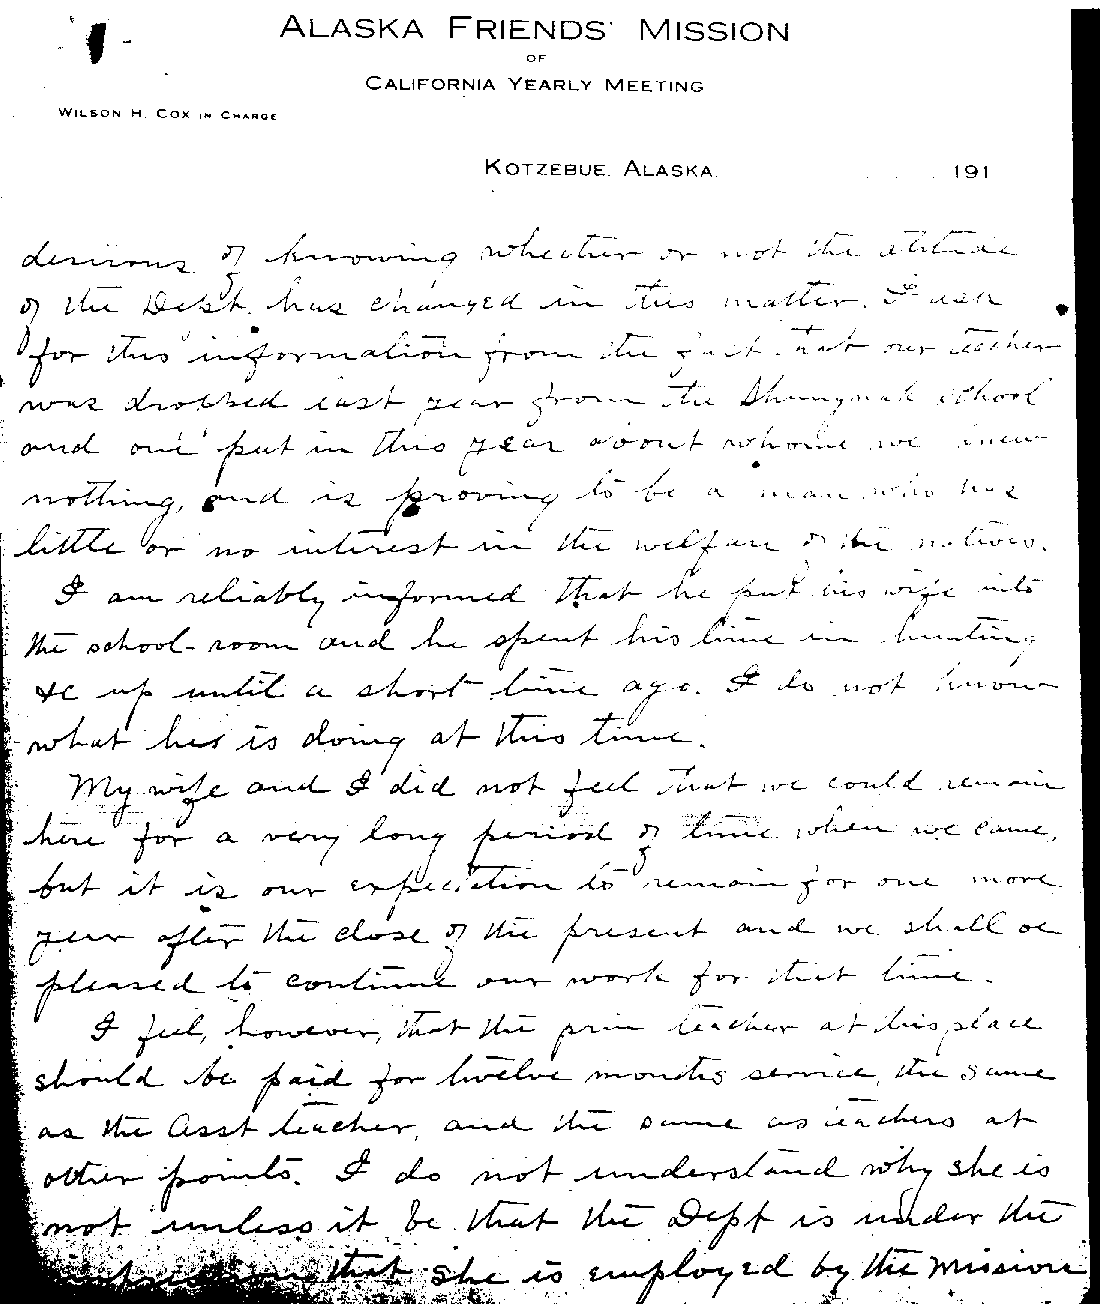 ALASKA FRIENDS' MISSION
OF
CALIFORNIA YEARLY MEETING
WILSON H. COX IN CHARGE
KOTZEBUE, ALASKA. 191
desirous of knowing whether or not the attitude
of the Dept. has changed in this matter. I ask
for this information from the fact that our teacher
was dropped last year from the Shungnak school
and one put in this year about whome we knew
nothing, and is proving to be a man who has
little or no interest in the welfare of the natives.
I am reliably informed that he put his wife into
the school-room and he spent his time in hunting
&c up until a short time ago. I do not know
what he is doing at this time.
My wife and I did not feel that we could remain
here for a very long period of time when we came,
but it is our expectation to remain for one more
year after the close of the present and we shall be
pleased to continue our work for that time.
I feel, however, that the prin teacher at this place
should be paid for twelve months service, the same
as the Asst teacher, and the same as teachers at
other points. I do not understand why she is
not unless it be that the Dept is under the
impression that she is employed by the Mission